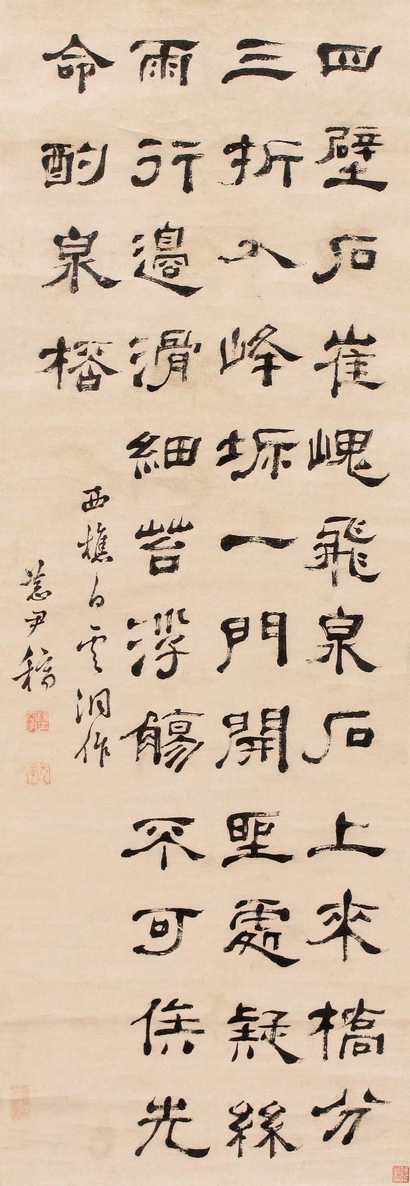 四壁石崔嵬飛泉石上來橋分
三折入峰坼一門開望處疑絲
雨行邊滑細苔浮觴不可俟先
命酌泉桮
西樵白雲洞作
恭尹稿